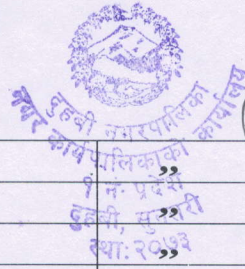 दुहवी नगरपालिका
नगर कार्यपालिकाको कार्यालय
१ नं. प्रदेश
दुहवी, सुनसरी
स्था: २०७३
,,
,,
,,